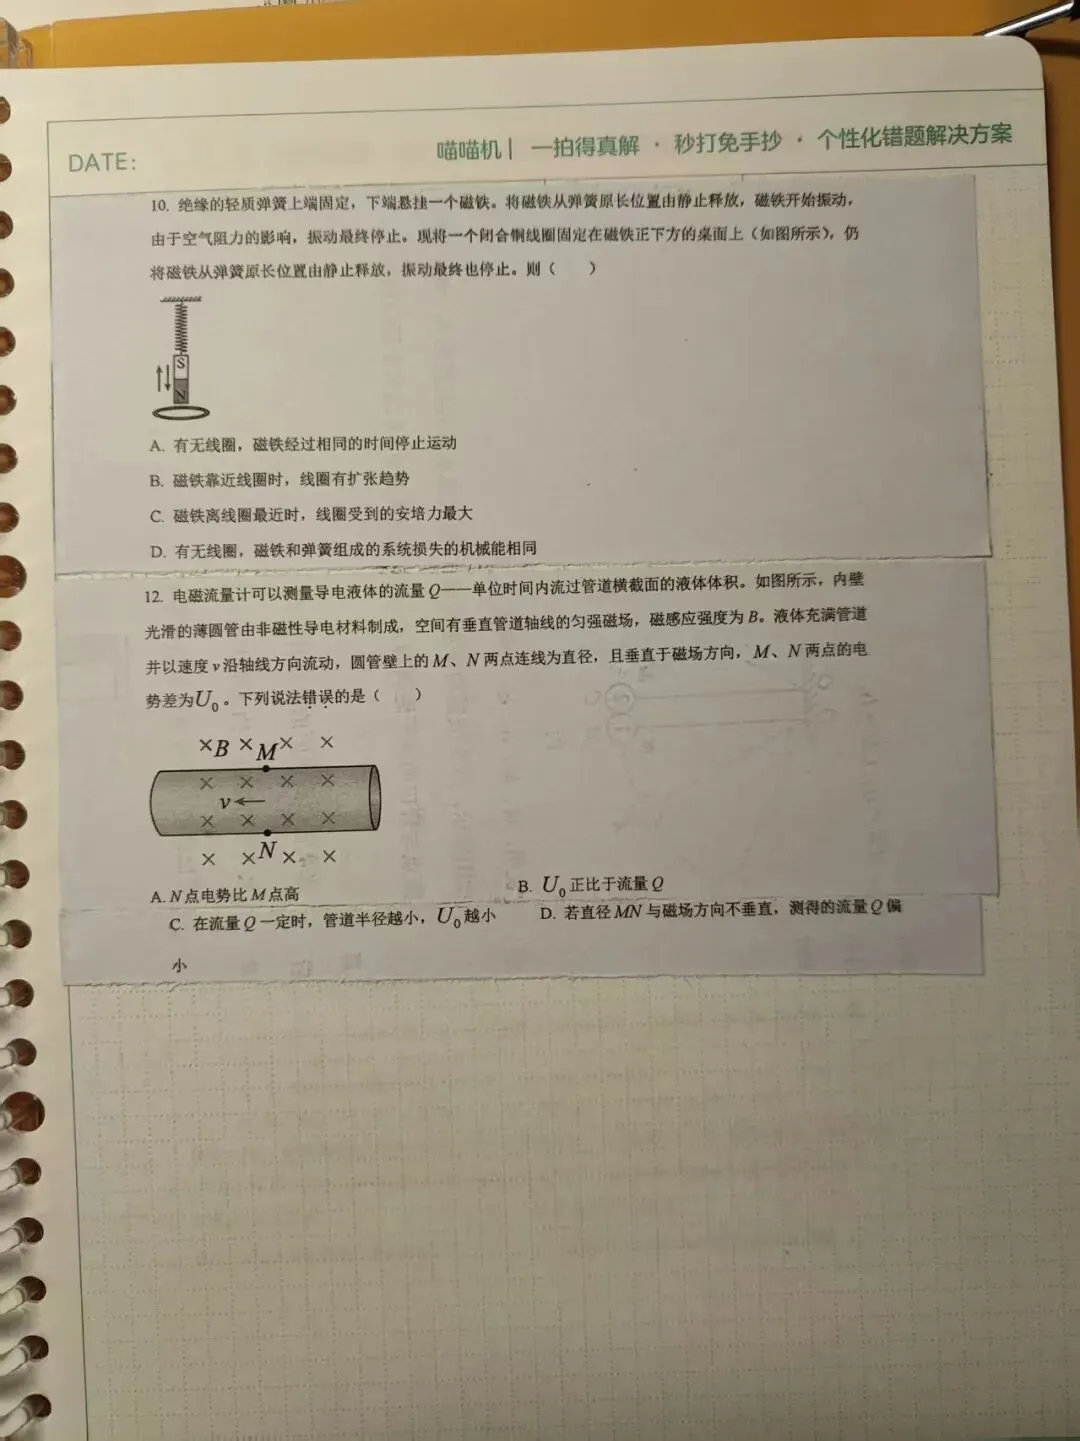 DATE:
喵喵机 | 一拍得真解 · 秒打免手抄 · 个性化错题解决方案
10. 绝缘的轻质弹簧上端固定，下端悬挂一个磁铁。将磁铁从弹簧原长位置由静止释放，磁铁开始振动，
由于空气阻力的影响，振动最终停止。现将一个闭合铜线圈固定在磁铁正下方的桌面上（如图所示），仍
将磁铁从弹簧原长位置由静止释放，振动最终也停止。则（ ）
S
N
A. 有无线圈，磁铁经过相同的时间停止运动
B. 磁铁靠近线圈时，线圈有扩张趋势
C. 磁铁离线圈最近时，线圈受到的安培力最大
D. 有无线圈，磁铁和弹簧组成的系统损失的机械能相同
12. 电磁流量计可以测量导电液体的流量Q——单位时间内流过管道横截面的液体体积。如图所示，内壁
光滑的薄圆管由非磁性导电材料制成，空间有垂直管道轴线的匀强磁场，磁感应强度为B。液体充满管道
并以速度v沿轴线方向流动，圆管壁上的M、N两点连线为直径，且垂直于磁场方向，M、N两点的电
势差为U₀。下列说法错误的是（ ）
×B × M × ×
× × × ×
v←
× × × ×
× × N × ×
A. N点电势比M点高
B. U₀正比于流量Q
C. 在流量Q一定时，管道半径越小，U₀越小
D. 若直径MN与磁场方向不垂直，测得的流量Q偏
小